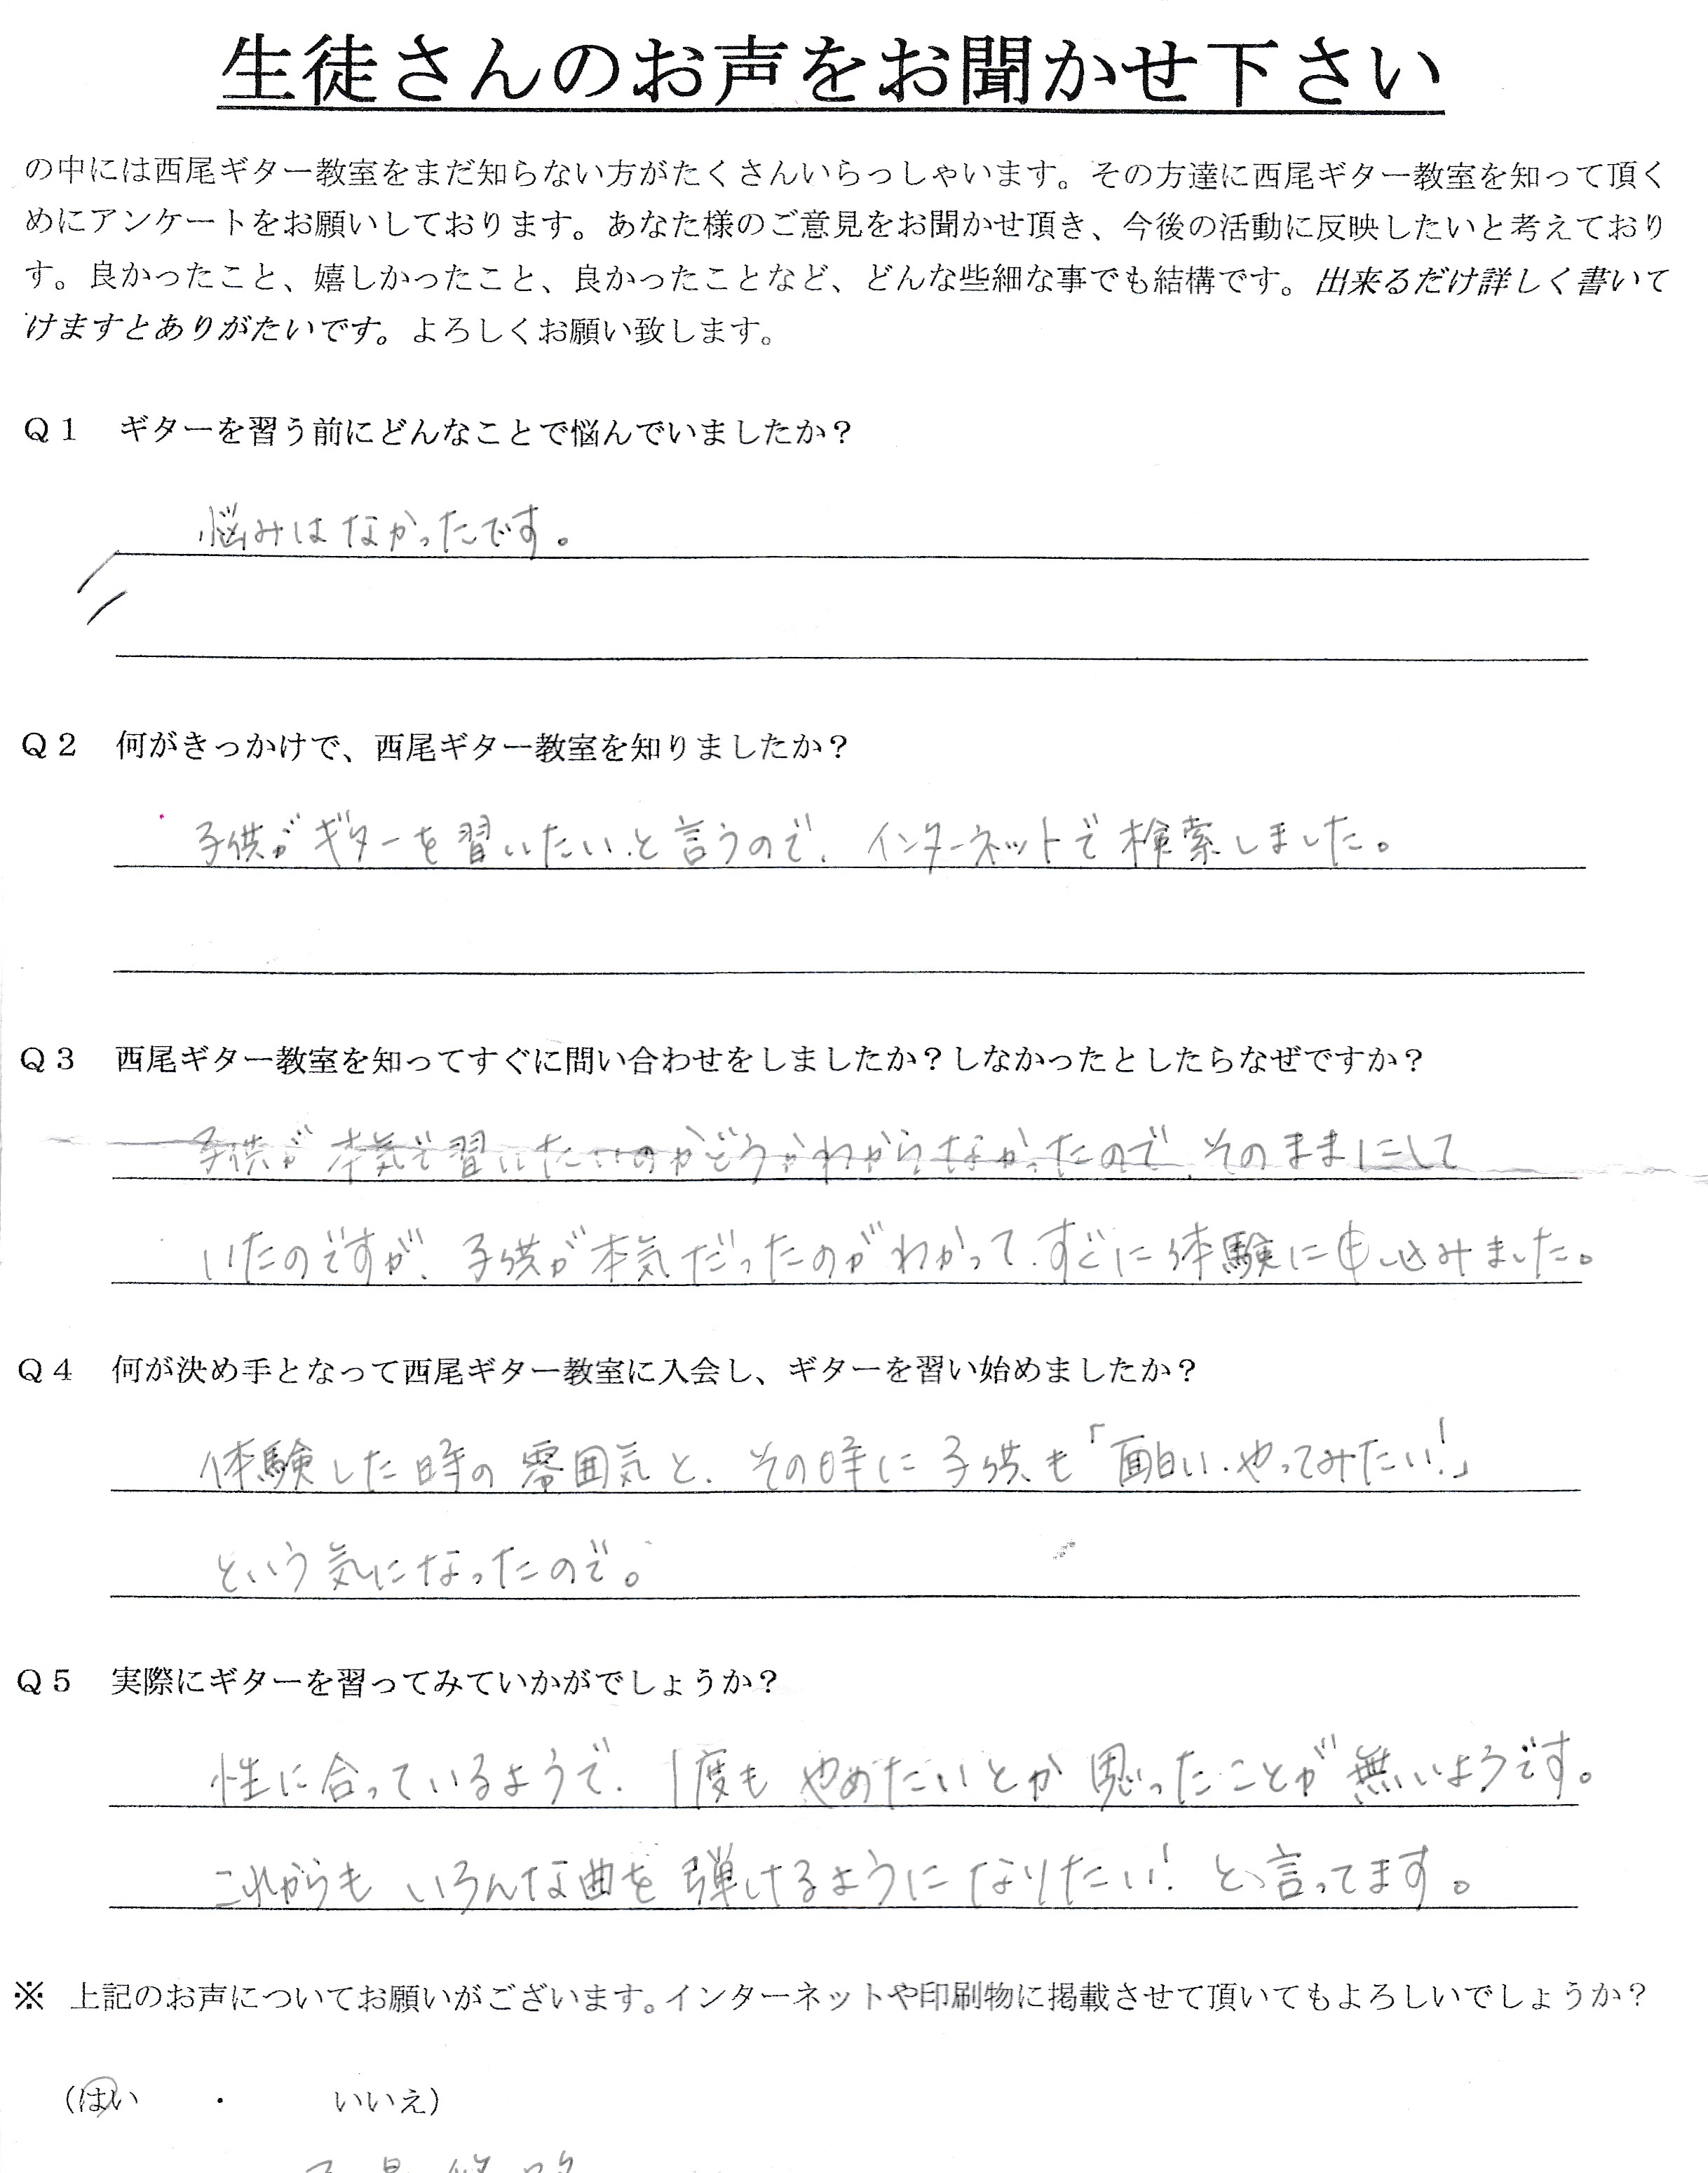 生徒さんのお声をお聞かせ下さい
の中には西尾ギター教室をまだ知らない方がたくさんいらっしゃいます。その方達に西尾ギター教室を知って頂く
めにアンケートをお願いしております。あなた様のご意見をお聞かせ頂き、今後の活動に反映したいと考えており
す。良かったこと、嬉しかったこと、良かったことなど、どんな些細な事でも結構です。出来るだけ詳しく書いて
けますとありがたいです。よろしくお願い致します。
Q1 ギターを習う前にどんなことで悩んでいましたか?
悩みはなかったです。
Q2 何がきっかけで、西尾ギター教室を知りましたか?
子供がギターを習いたいと言うので、インターネットで検索しました。
Q3 西尾ギター教室を知ってすぐに問い合わせをしましたか?しなかったとしたらなぜですか?
子供が本気で習いたいのかどうかわからなかったので、そのままにして
いたのですが、子供が本気だったのがわかって、すぐに体験に申し込みました。
Q4 何が決め手となって西尾ギター教室に入会し、ギターを習い始めましたか?
体験した時の雰囲気と、その時に子供も「面白い、やってみたい!」
という気になったので。
Q5 実際にギターを習ってみていかがでしょうか?
性に合っているようで、1度もやめたいとか思ったことが無いようです。
これからもいろんな曲を弾けるようになりたい!と、言ってます。
※ 上記のお声についてお願いがございます。インターネットや印刷物に掲載させて頂いてもよろしいでしょうか?
(はい ・ いいえ)